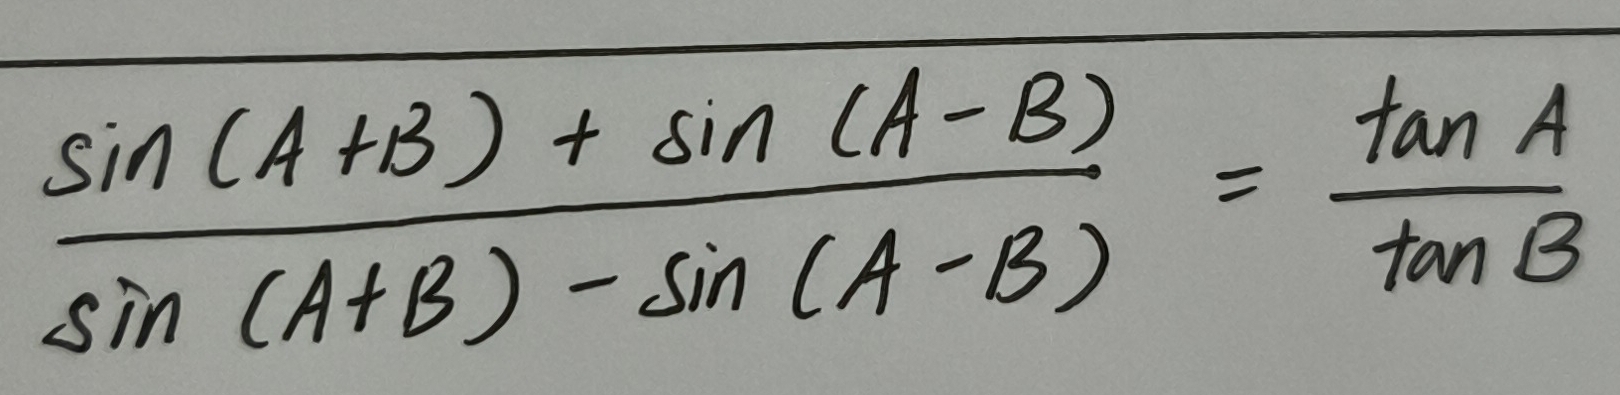 sin (A+B) + sin (A-B) / sin (A+B) - sin (A-B) = tan A / tan B